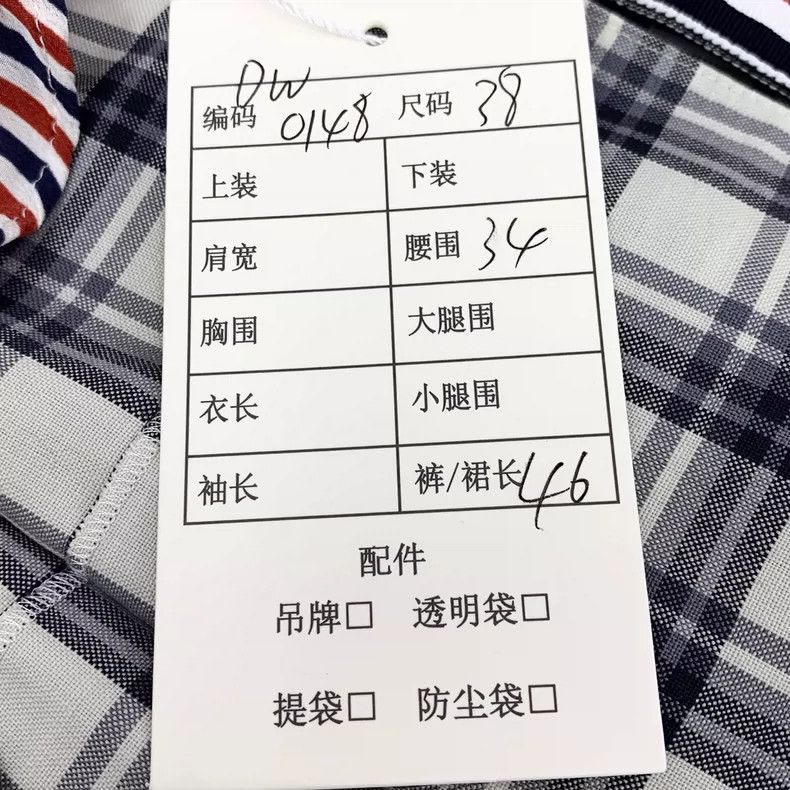 编码 DW 0148 尺码 38
上装 下装
肩宽 腰围 34
胸围 大腿围
衣长 小腿围
袖长 裤/裙长 46
配件
吊牌□ 透明袋□
提袋□ 防尘袋□